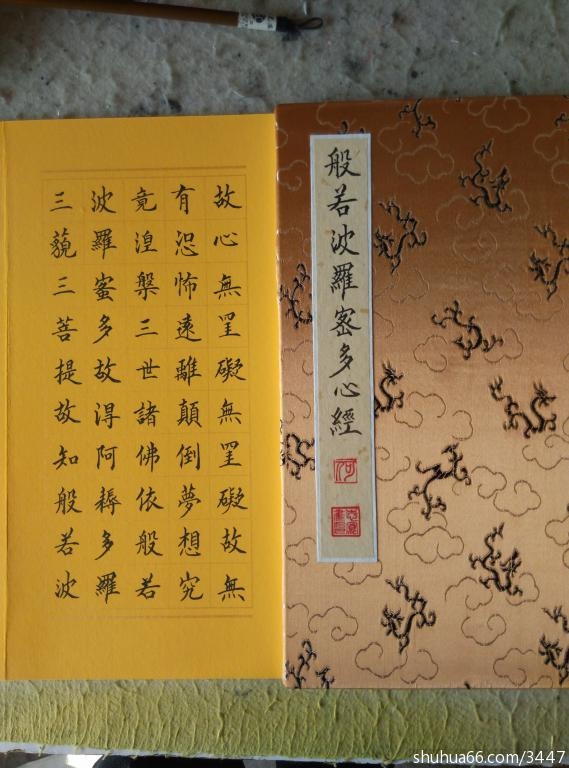 般若波羅密多心經
故心無罣礙無罣礙故無
有恐怖遠離顛倒夢想究
竟涅槃三世諸佛依般若
波羅蜜多故得阿耨多羅
三藐三菩提故知般若波
shuhua66.com/3447